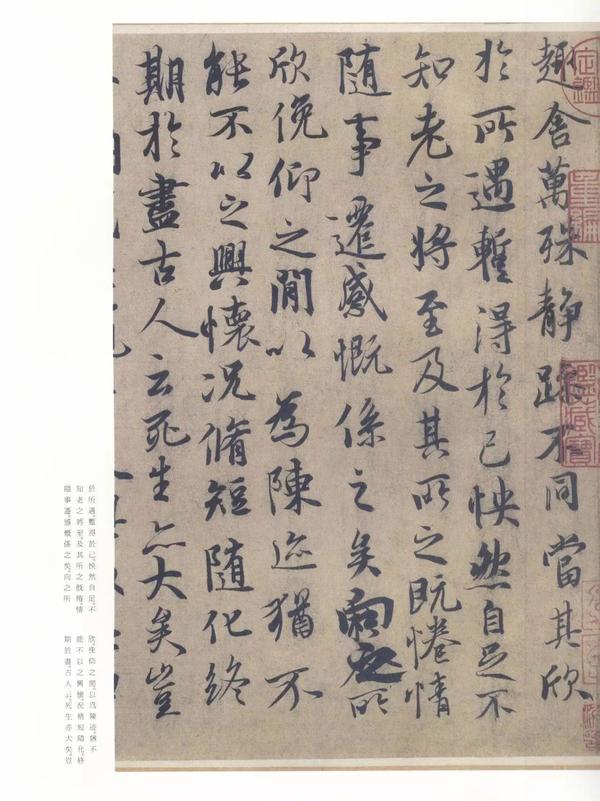 趣舍萬殊静躁不同當其欣
於所遇蹔得於己怏然自足不
知老之將至及其所之既惓情
随事遷感慨係之矣向之所
欣俛仰之閒以為陳迹猶不
能不以之興懷况脩短随化終
期於盡古人云死生亦大矣豈
定鑑
重編
鑑藏寶
於所遇，蹔得於己，怏然自足，不
知老之將至，及其所之既惓，情
隨事遷，感慨係之矣。向之所
欣，俛仰之閒，以爲陳迹，猶不
能不以之興懷。況脩短隨化，終
期於盡。古人云，死生亦大矣。豈